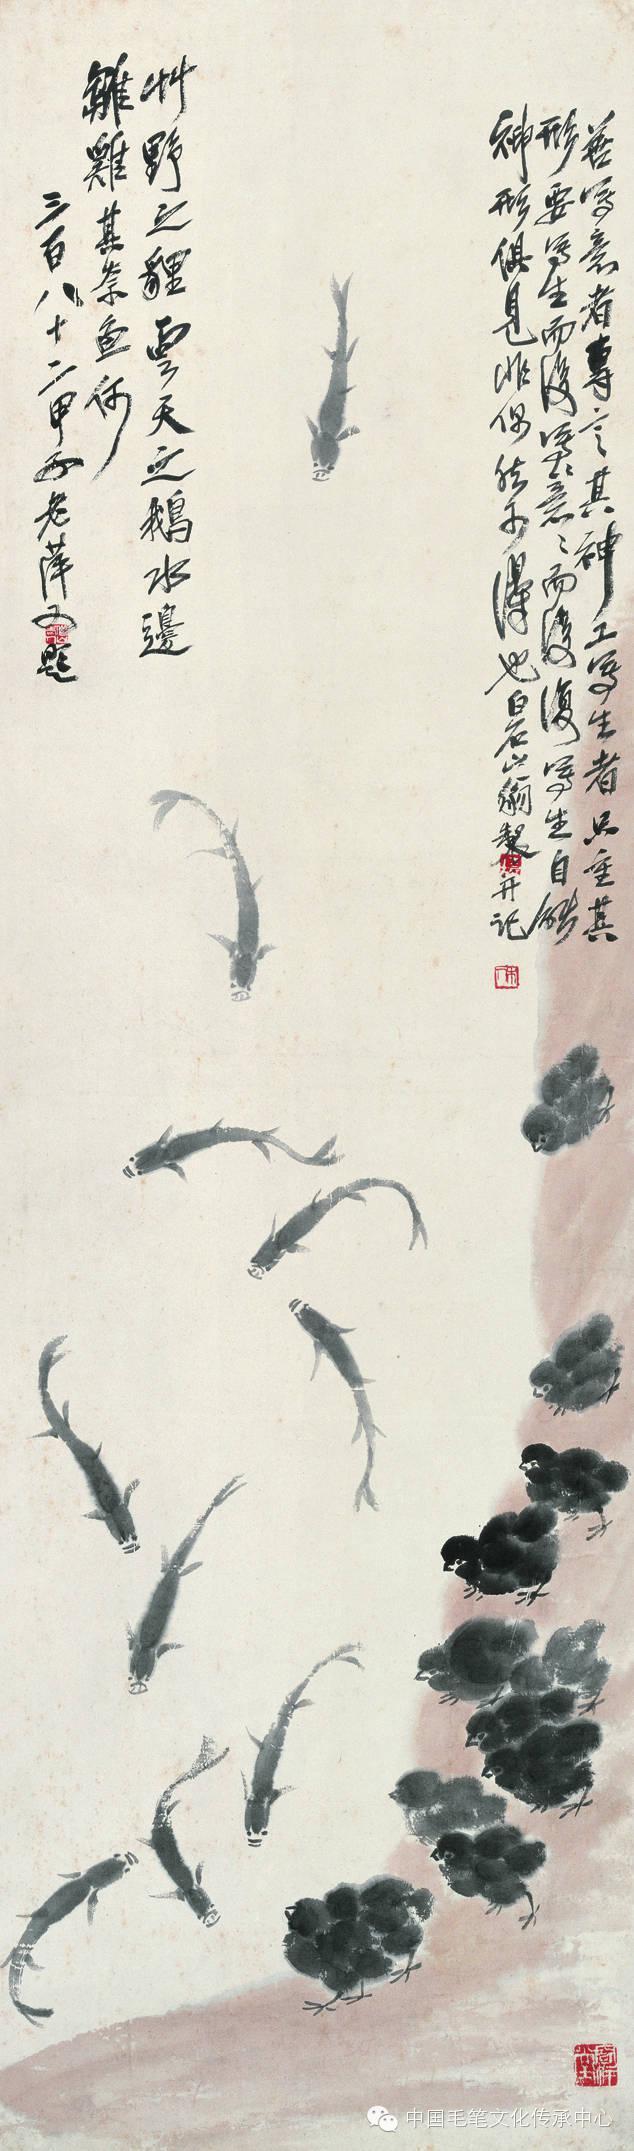 善写意者專言其神工写生者只重其
形要写生而後写意写意而後復写生自能
神形俱見非偶然可得也白石山翁製并记
艸野之貍雲天之鵝水邊
雛雞其奈魚何
三百八十二甲子老萍又題
中国毛笔文化传承中心